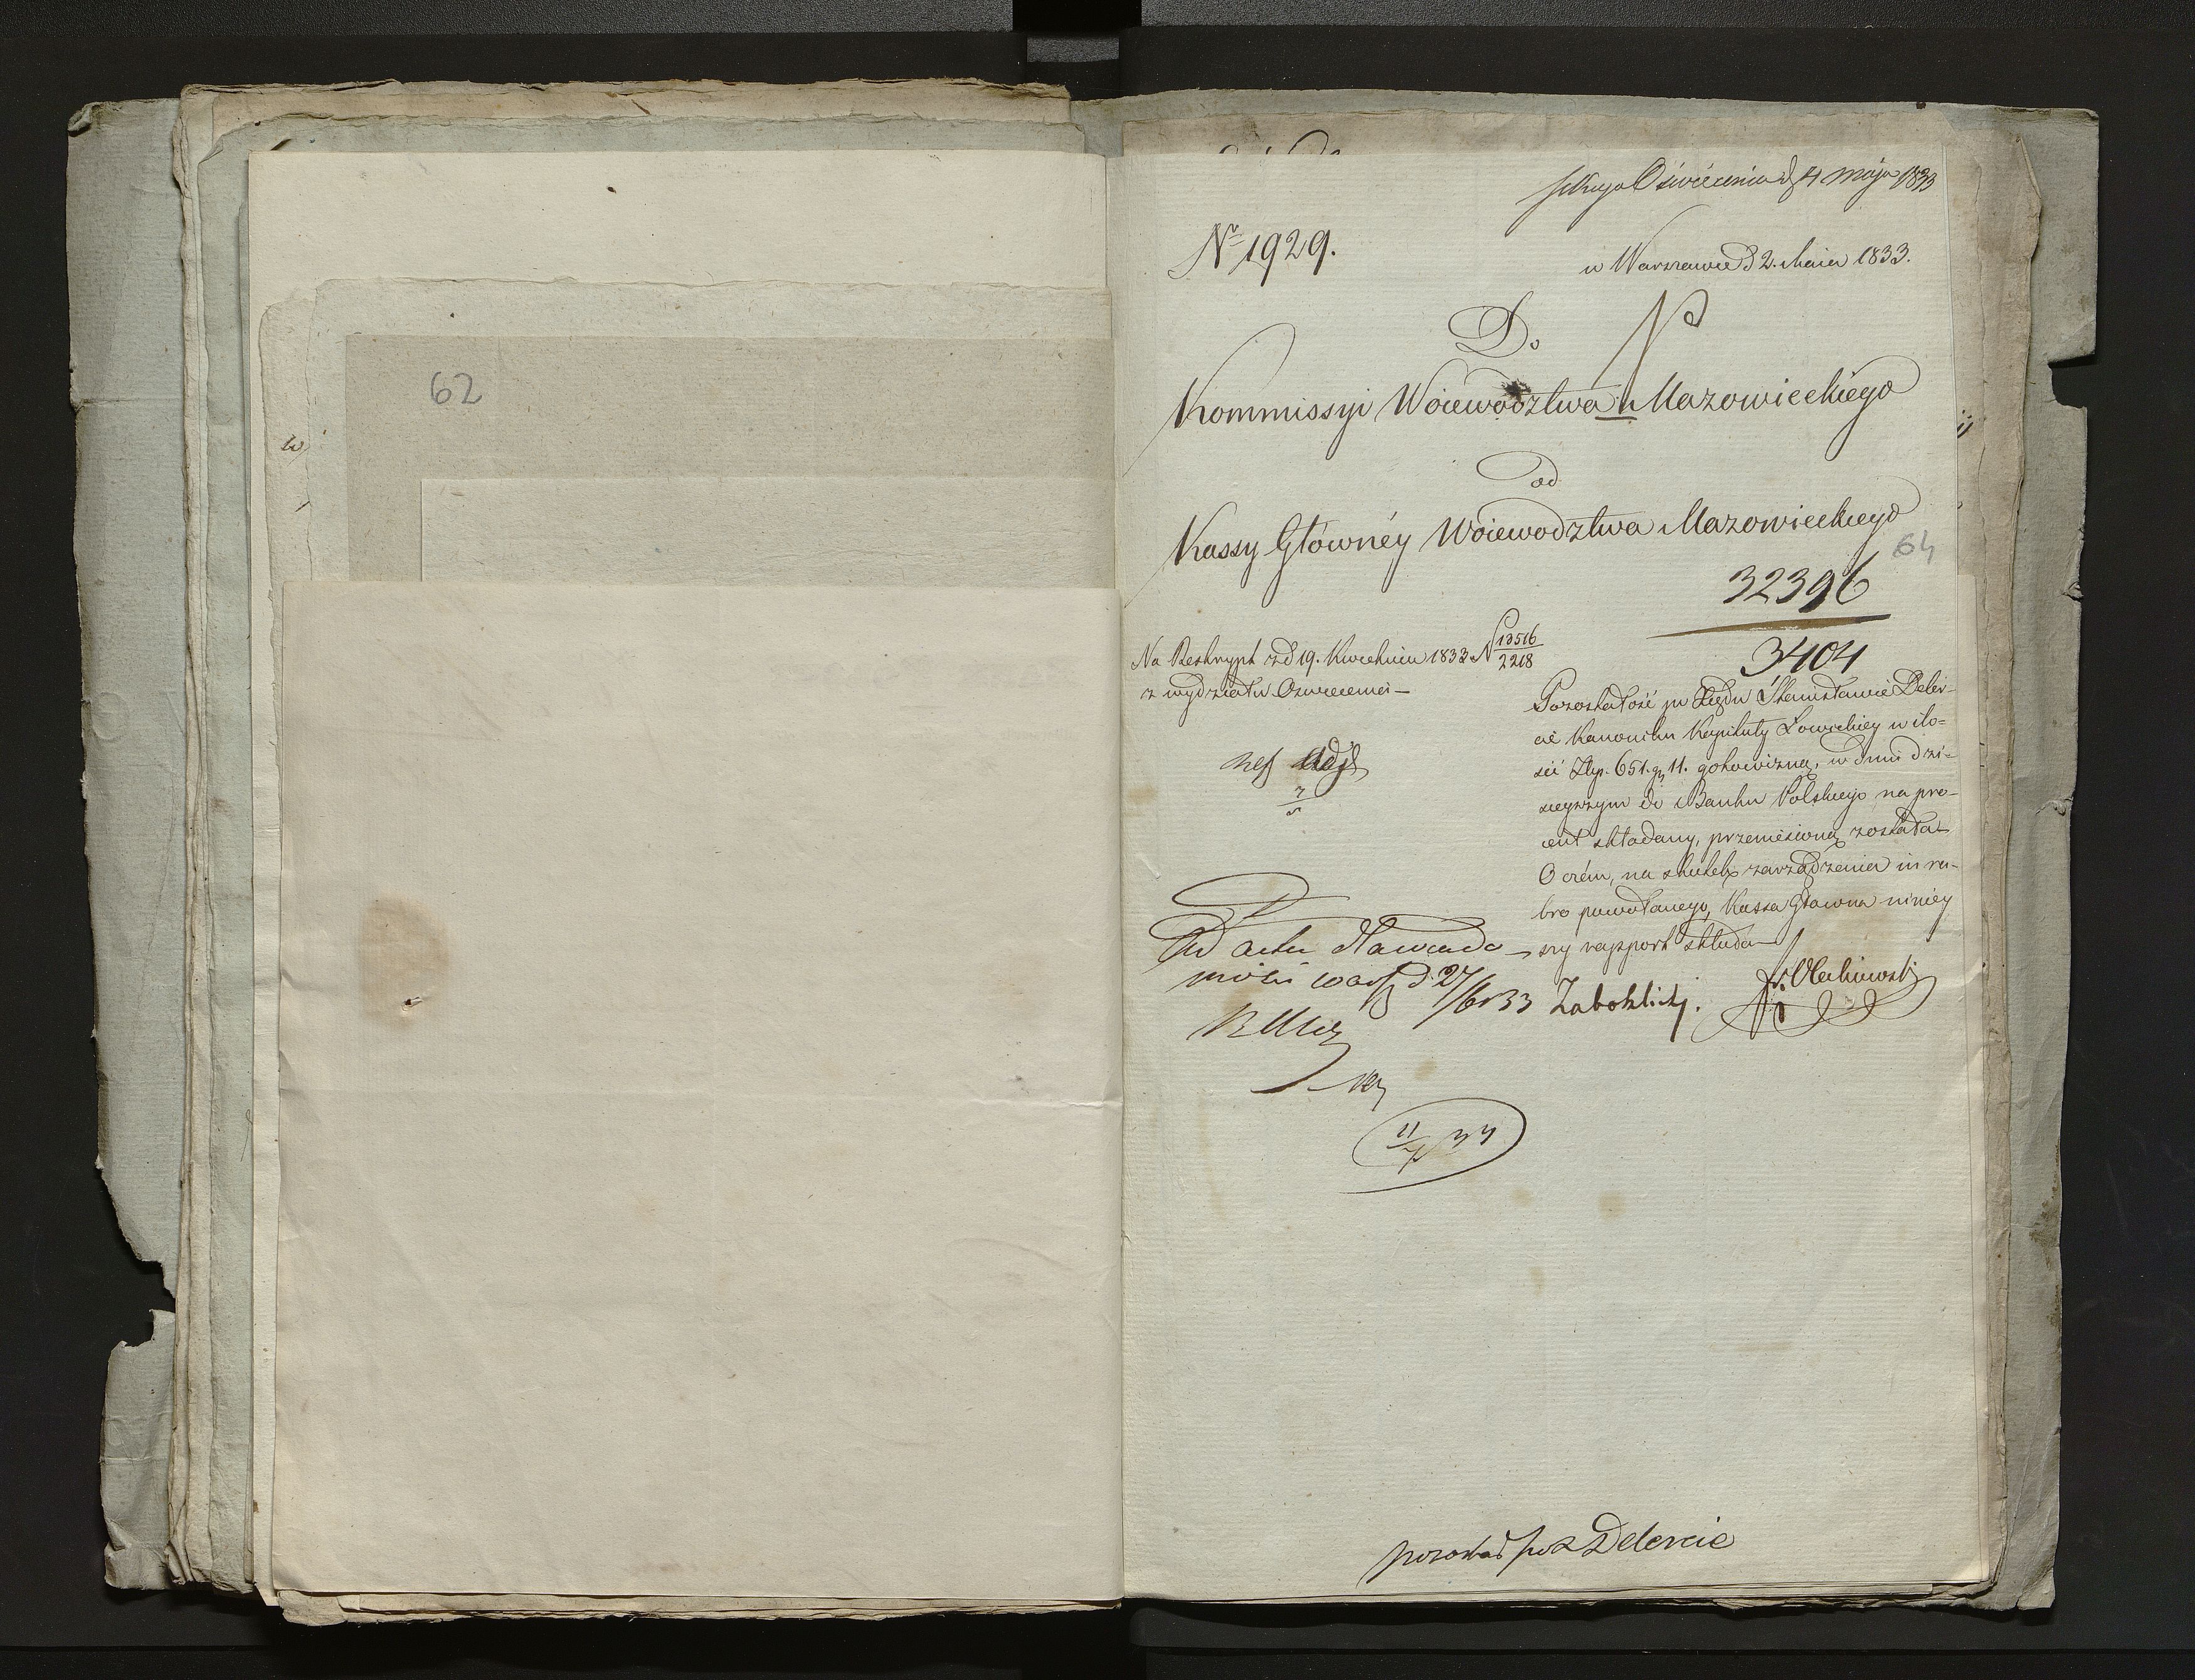 62
w
Oświecenia d 4 maja 1833
Nr 1929.
w Warszawie d 2. Maia 1833.
Do
Kommissyi Woiewodztwa Mazowieckiego
od
Kassy Głównéy Woiewodztwa Mazowieckiego
64
32396
3404
Na Reskrypt z d 19. Kwietnia 1833 N 13516/2218
z wydziału Oswiecenia —
Pozostałość po Xiędzu Stanisławie Deler-
cie Kanoniku Kapituły Łowickiey w ilo-
ści Złp. 651. gr 11. gotowizną, w dniu dzi-
sieyszym do Banku Polskiego na pro-
cent składany, przeniesioną została
O czém, na skutek zarządzenia in ru-
bro powołanego, Kassa Główna niniey
szy rapport składa
Ad acta
d. 27/6 833
Zaboklicki.
11/7 33
pozostał po X Delercie